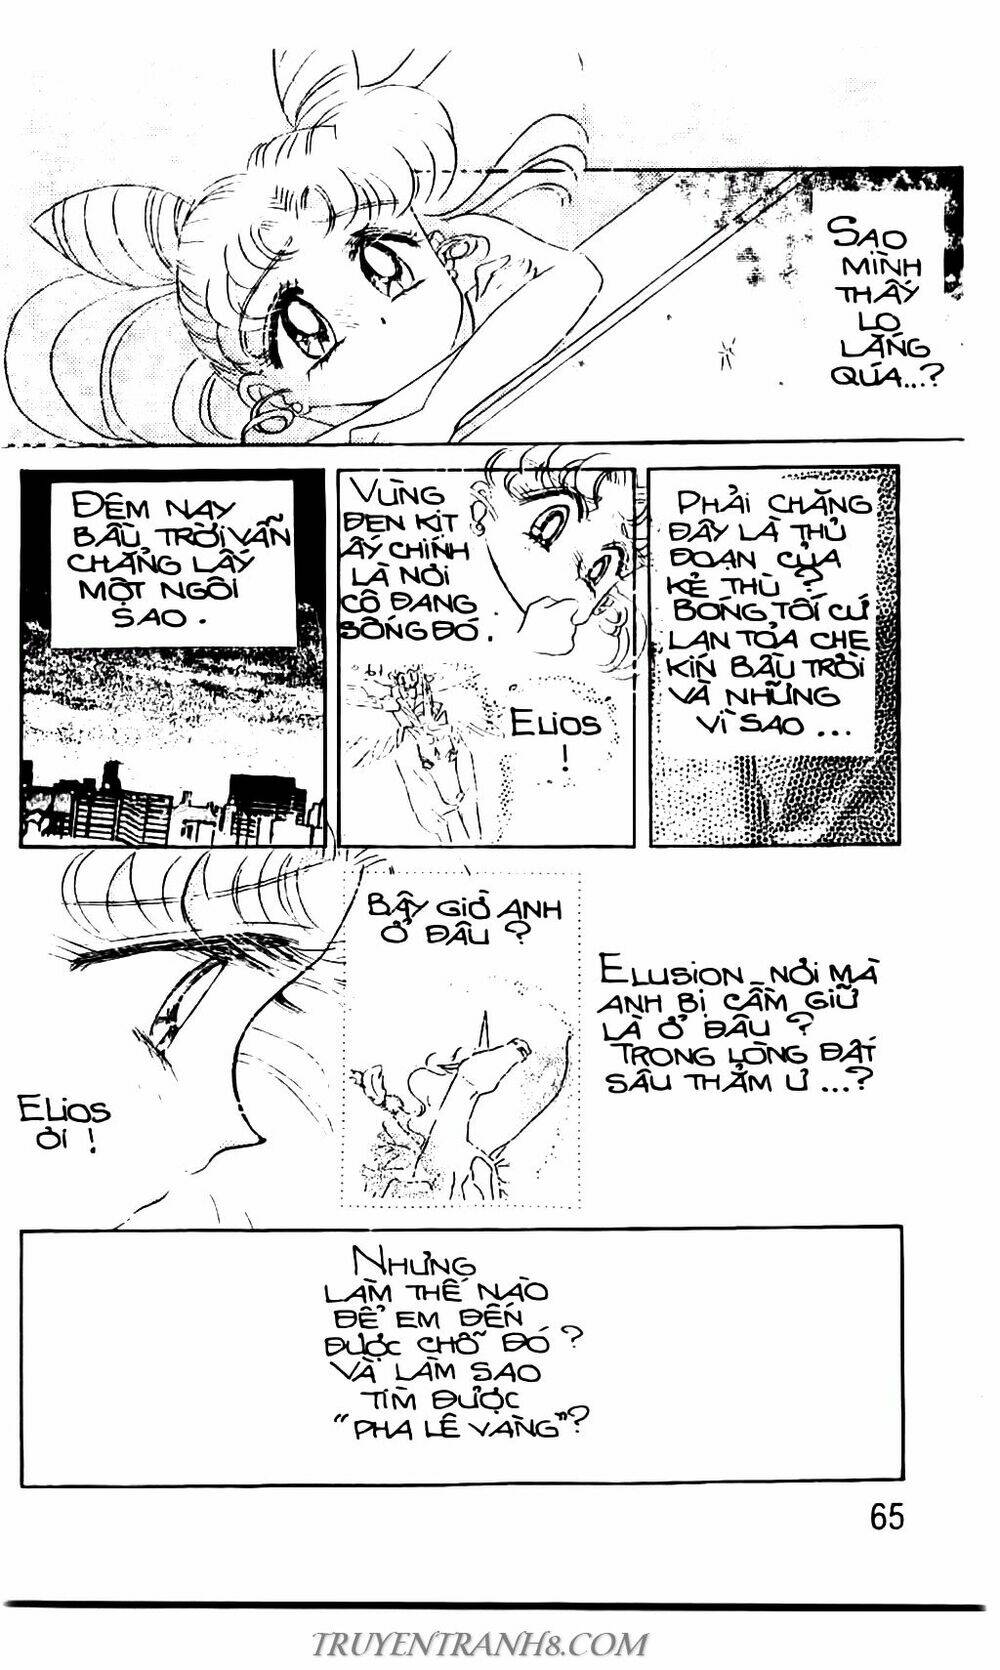 SAO
MÌNH
THẤY
LO
LẮNG
QÚA...?
ĐÊM NAY
BẦU TRỜI VẪN
CHẲNG LẤY
MỘT NGÔI
SAO.
VÙNG
ĐEN KỊT
ẤY CHÍNH
LÀ NƠI
CÔ ĐANG
SỐNG ĐÓ.
ELIOS
!
PHẢI CHĂNG
ĐÂY LÀ THỦ
ĐOẠN CỦA
KẺ THÙ?
BÓNG TỐI CỨ
LAN TỎA CHE
KÍN BẦU TRỜI
VÀ NHỮNG
VÌ SAO...
ELIOS
ƠI!
BÂY GIỜ ANH
Ở ĐÂU?
ELUSION NƠI MÀ
ANH BỊ CẦM GIỮ
LÀ Ở ĐÂU?
TRONG LÒNG ĐẤT
SÂU THẲM Ư...?
NHƯNG
LÀM THẾ NÀO
ĐỂ EM ĐẾN
ĐƯỢC CHỖ ĐÓ?
VÀ LÀM SAO
TÌM ĐƯỢC
"PHA LÊ VÀNG"?
65
TRUYENTRANH8.COM